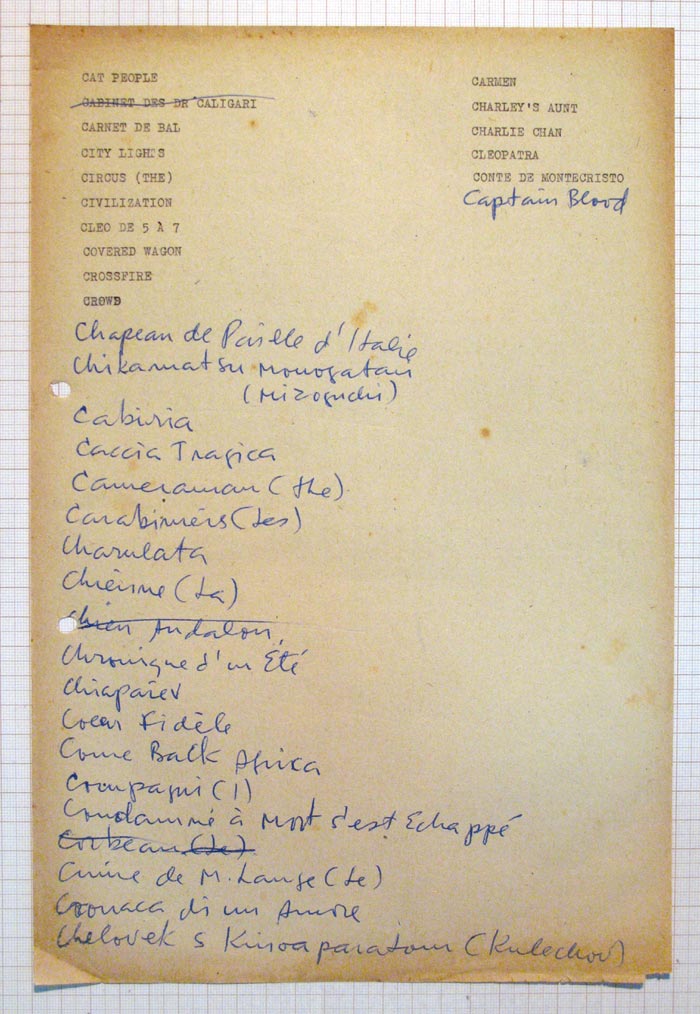 CAT PEOPLE
CABINET DES DR CALIGARI
CARNET DE BAL
CITY LIGHTS
CIRCUS (THE)
CIVILIZATION
CLEO DE 5 À 7
COVERED WAGON
CROSSFIRE
CROWD
Chapeau de Paille d'Italie
Chikamatsu Monogatari
(Mizoguchi)
Cabiria
Caccia Tragica
Cameraman (the)
Carabiniers (Les)
Charulata
Chienne (La)
Chien Andalou
Chronique d'un Été
Chiapaiev
Coeur Fidèle
Come Back Africa
Compagni (I)
Condamné à Mort s'est Echappé
Corbeau (Le)
Crime de M. Lange (Le)
Cronaca di un Amore
Chelovek s Kinoaparatom (Kulechov)
CARMEN
CHARLEY'S AUNT
CHARLIE CHAN
CLEOPATRA
CONTE DE MONTECRISTO
Captain Blood